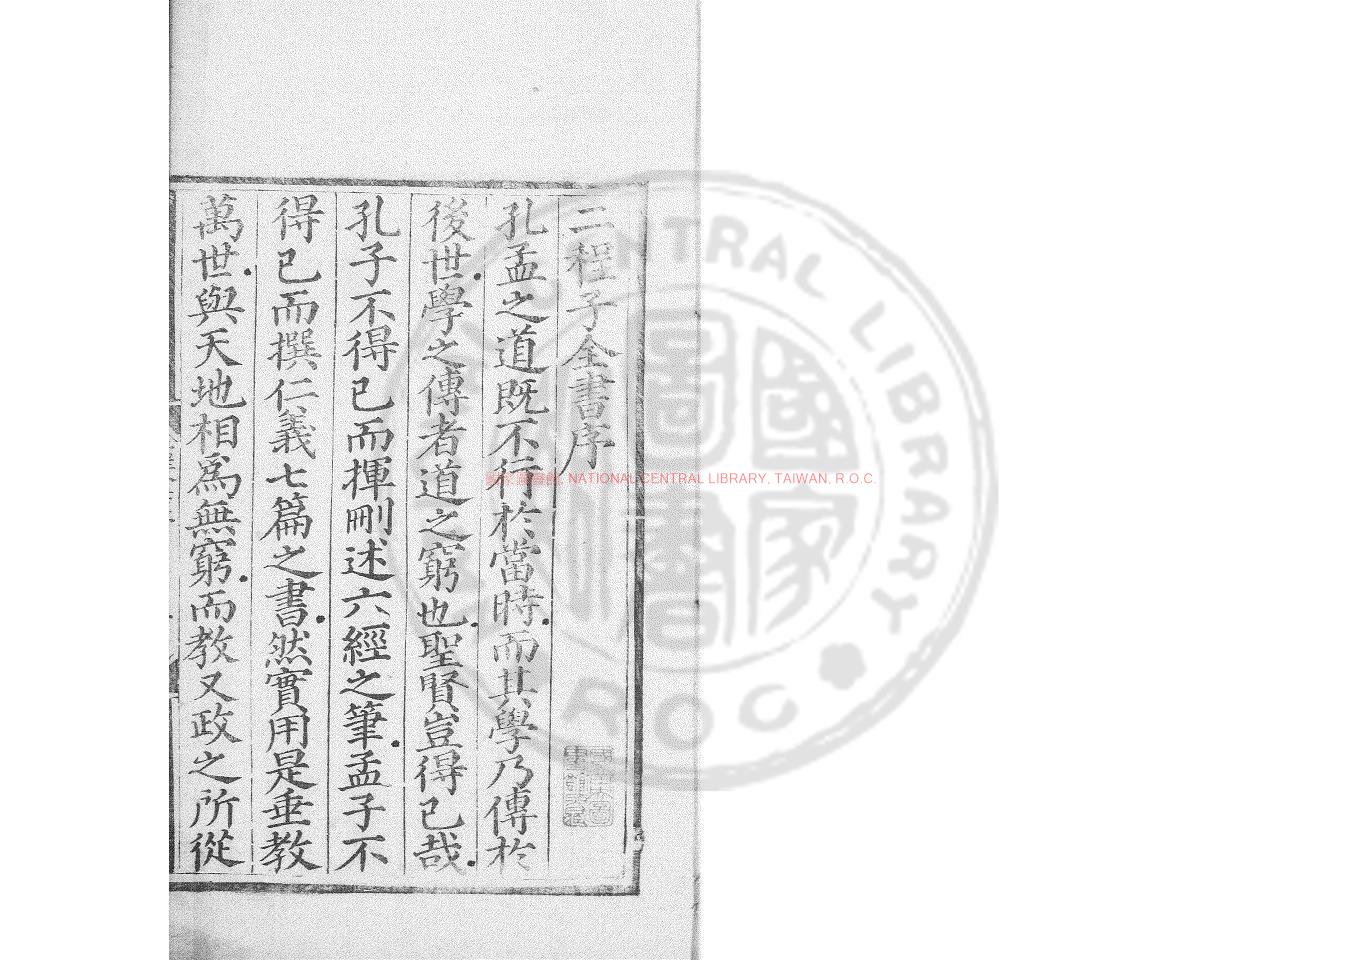 二程子全書序
孔孟之道既不行於當時而其學乃傳於
後世學之傳者道之窮也聖賢豈得已哉
孔子不得已而揮刪述六經之筆孟子不
得已而撰仁義七篇之書然實用是垂教
萬世與天地相為無窮而教又政之所從
國家圖書館, NATIONAL CENTRAL LIBRARY, TAIWAN, R.O.C.
CENTRAL LIBRARY
R O C
國家圖書館